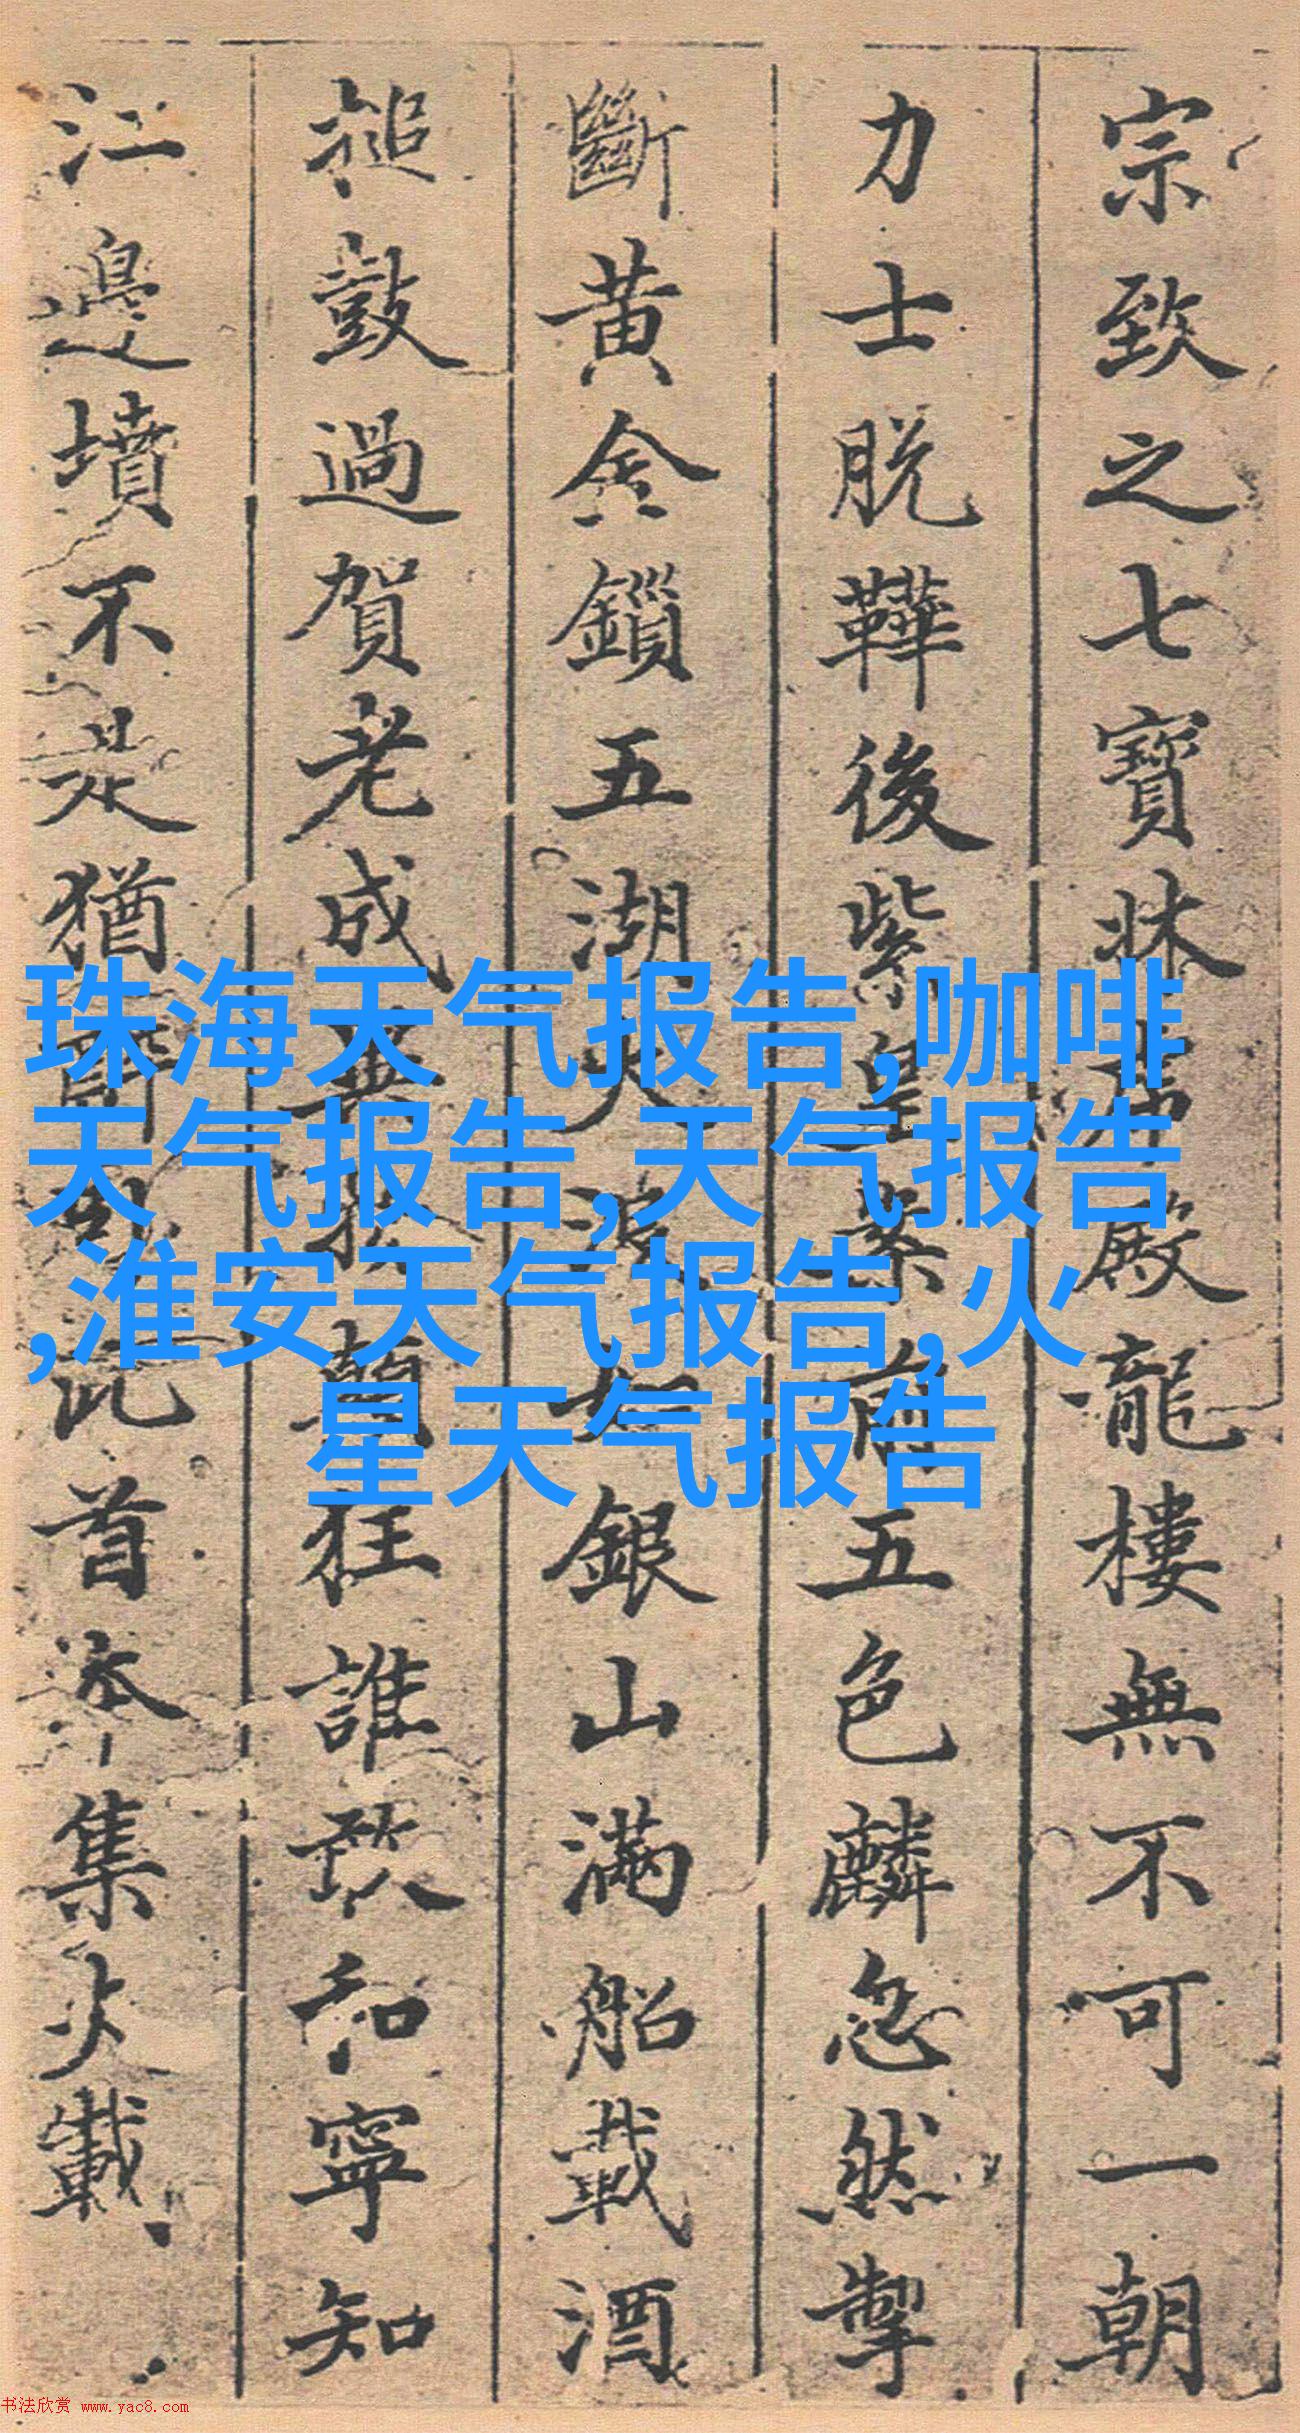 宗致之七寶牀
殿龍樓無不可一朝
力士脱鞾後紫皇
前五色麟忽然掣
斷黄金鎖五湖大浪如銀山滿船載酒
搥鼓過賀老成異
狂誰敢和寧知
江邊墳不是猶
此首本集火載
珠海天气报告,咖啡
天气报告,天气报告
,淮安天气报告,火
星天气报告
书法欣赏 www.yac8.com